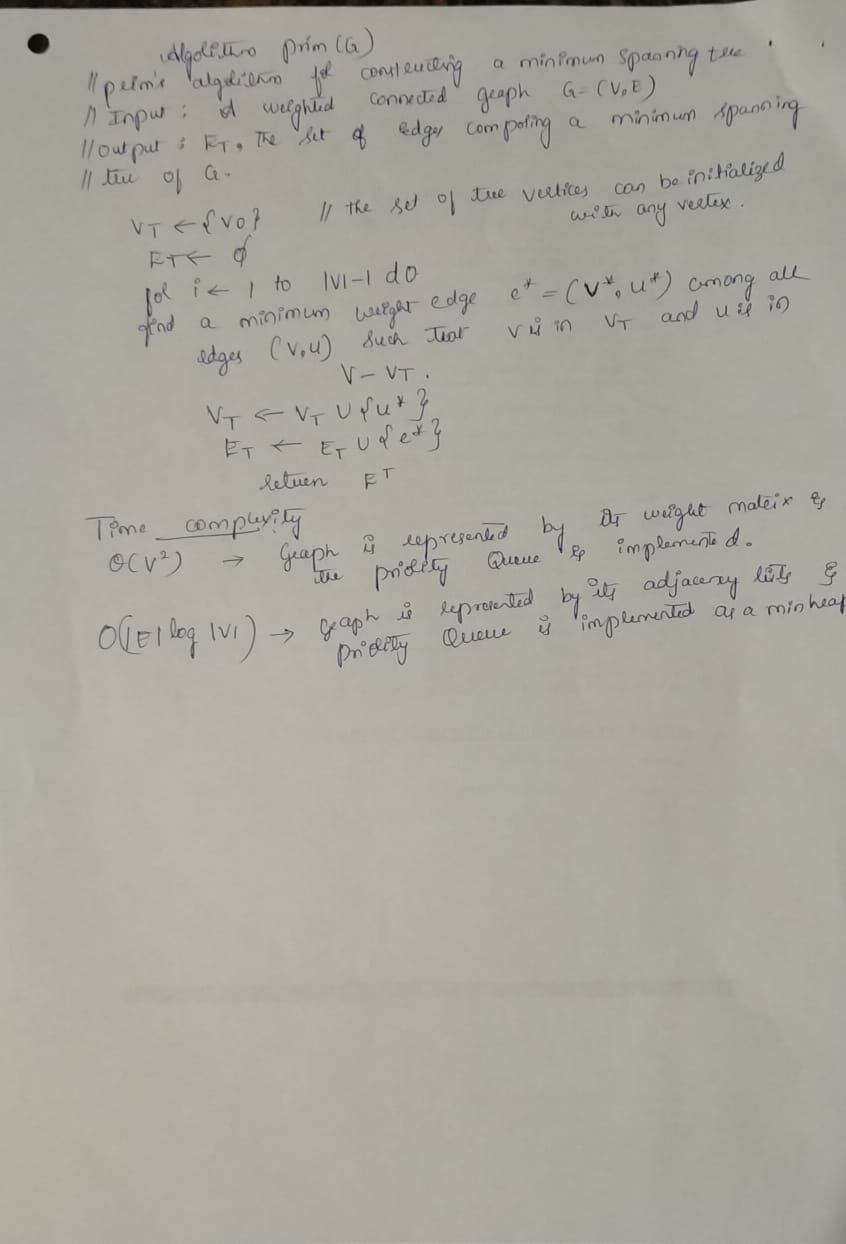 Algorithm prim(G)
// prim's algorithm for constructing a minimum spanning tree
// Input : A weighted connected graph G = (V, E)
// output : ET, The set of edges composing a minimum spanning
// tree of G.
VT ← {V0} // the set of tree vertices can be initialized
with any vertex.
ET ← ϕ
for i ← 1 to |V|-1 do
find a minimum weight edge e* = (V*, u*) among all
edges (V, u) such that v is in VT and u is in
V - VT.
VT ← VT ∪ {u*}
ET ← ET ∪ {e*}
return ET
Time complexity
Θ(V²) → Graph is represented by its weight matrix &
the priority Queue is implemented.
O(|E| log |V|) → graph is represented by its adjacency lists &
priority Queue is implemented as a minheap